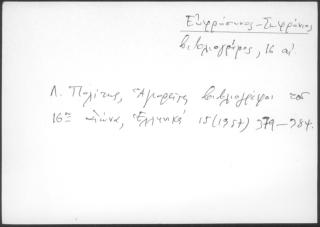 Εὐφρόσυνος - Σωφρόνιος
βιβλιογράφος, 16 αἰ
Λ. Πολίτης, Ἁγιορεῖτες βιβλιογράφοι τοῦ
16ου αἰώνα, Ἑλληνικά 15 (1957) 379–384.